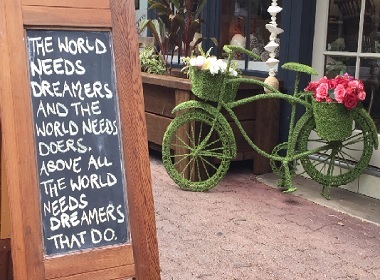 THE WORLD
NEEDS
DREAMERS
AND THE
WORLD NEEDS
DOERS.
ABOVE ALL
THE WORLD
NEEDS
DREAMERS
THAT DO.